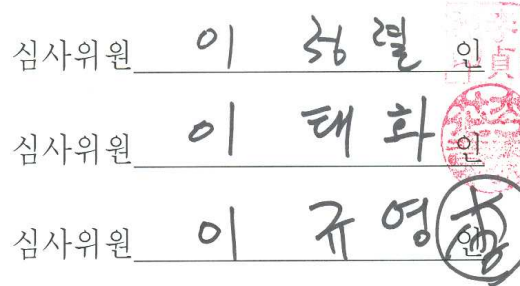 심사위원 이 정렬 인
심사위원 이 태화 인
심사위원 이 규영 인